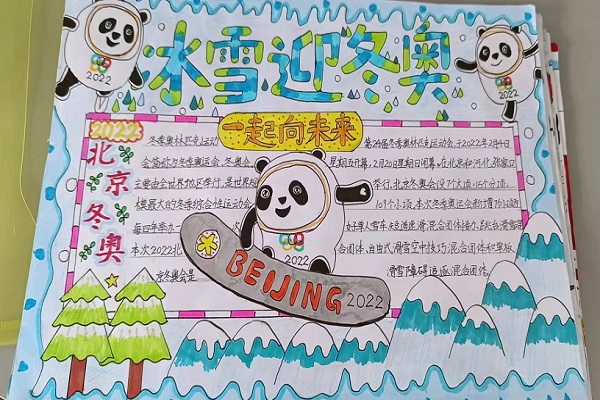 冰雪迎冬奥
2022
2022
一起向未来
2022
北京冬奥
冬季奥林匹克运动
会简称为冬季奥运会、冬奥会。
主要由全世界地区举行,是世界规
模最大的冬季综合性运动会,
每四年举办一
本次2022北
京冬奥会是
第24届冬季奥林匹克运动会,于2022年2月4日
星期五开幕,2月20日星期日闭幕。在北京和河北张家口
举行,北京冬奥会设7个大项,15个分项,
109个小项,本次冬季奥运会新增7个小项
女子单人雪车,短道速滑混合团体接力,跳台滑雪混
合团体,自由式滑雪空中技巧混合团体
滑雪障碍追逐混合团体
BEIJING 2022
2022